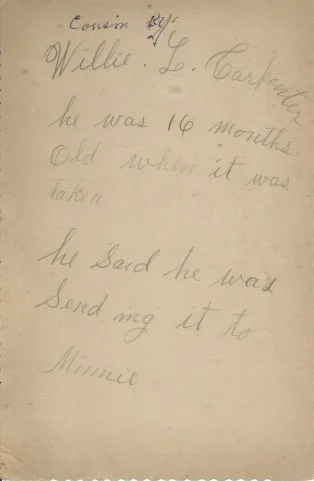 Cousin
Willie. L. Carpenter
he was 16 months
Old when it was
taken
he Said he was
Send mg it to
Minnie